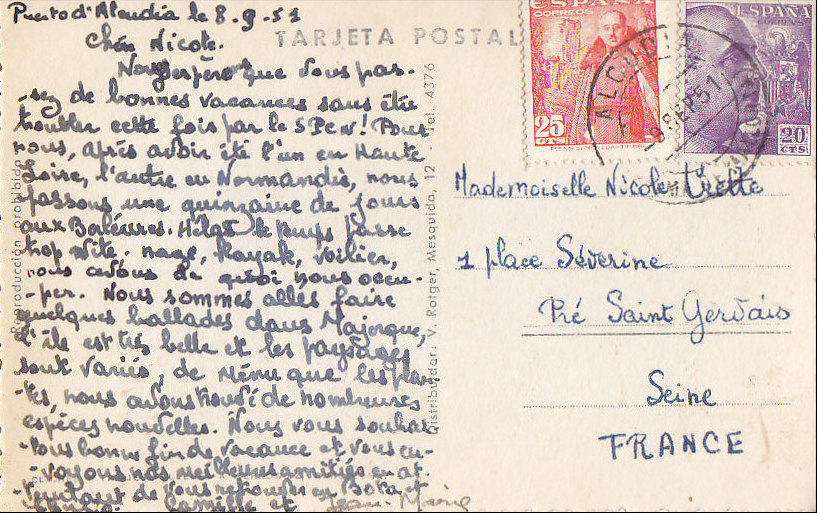 Puerto d'Alcudia le 8.9.51
Chère Nicole.
TARJETA POSTAL
Nous espérons que vous pas-
-sez de bonnes vacances sans être
troublée cette fois par le SPCN! Pour
nous, après avoir été l'un en Haute
Loire, l'autre en Normandie, nous
passons une quinzaine de jours
aux Baléares. Hélas le temps passe
trop vite. nage, Kayak, voilier,
nous avons de quoi nous occu-
-per. Nous sommes allés faire
quelques ballades dans Majorque,
l'île est très belle et les paysages
sont variés, de même que les plan-
-tes, nous avons trouvé de nombreuses
espèces nouvelles. Nous vous souhai-
-tons bonne fin de vacance et vous en-
-voyons nos meilleures amitiés en at-
-tendant de vous retrouver en Bota et
Camille et Jean-Marie
Reproducción prohibida
Distribuidor: V. Rotger, Mesquida, 12 - Tel. 4376
ESPAÑA
CORREOS
25
CTS
ESPAÑA
CORREOS
20
CTS
ALCUDIA
9 SEP 51
Mademoiselle Nicole Crette
1 place Séverine
Pré Saint Gervais
Seine
FRANCE